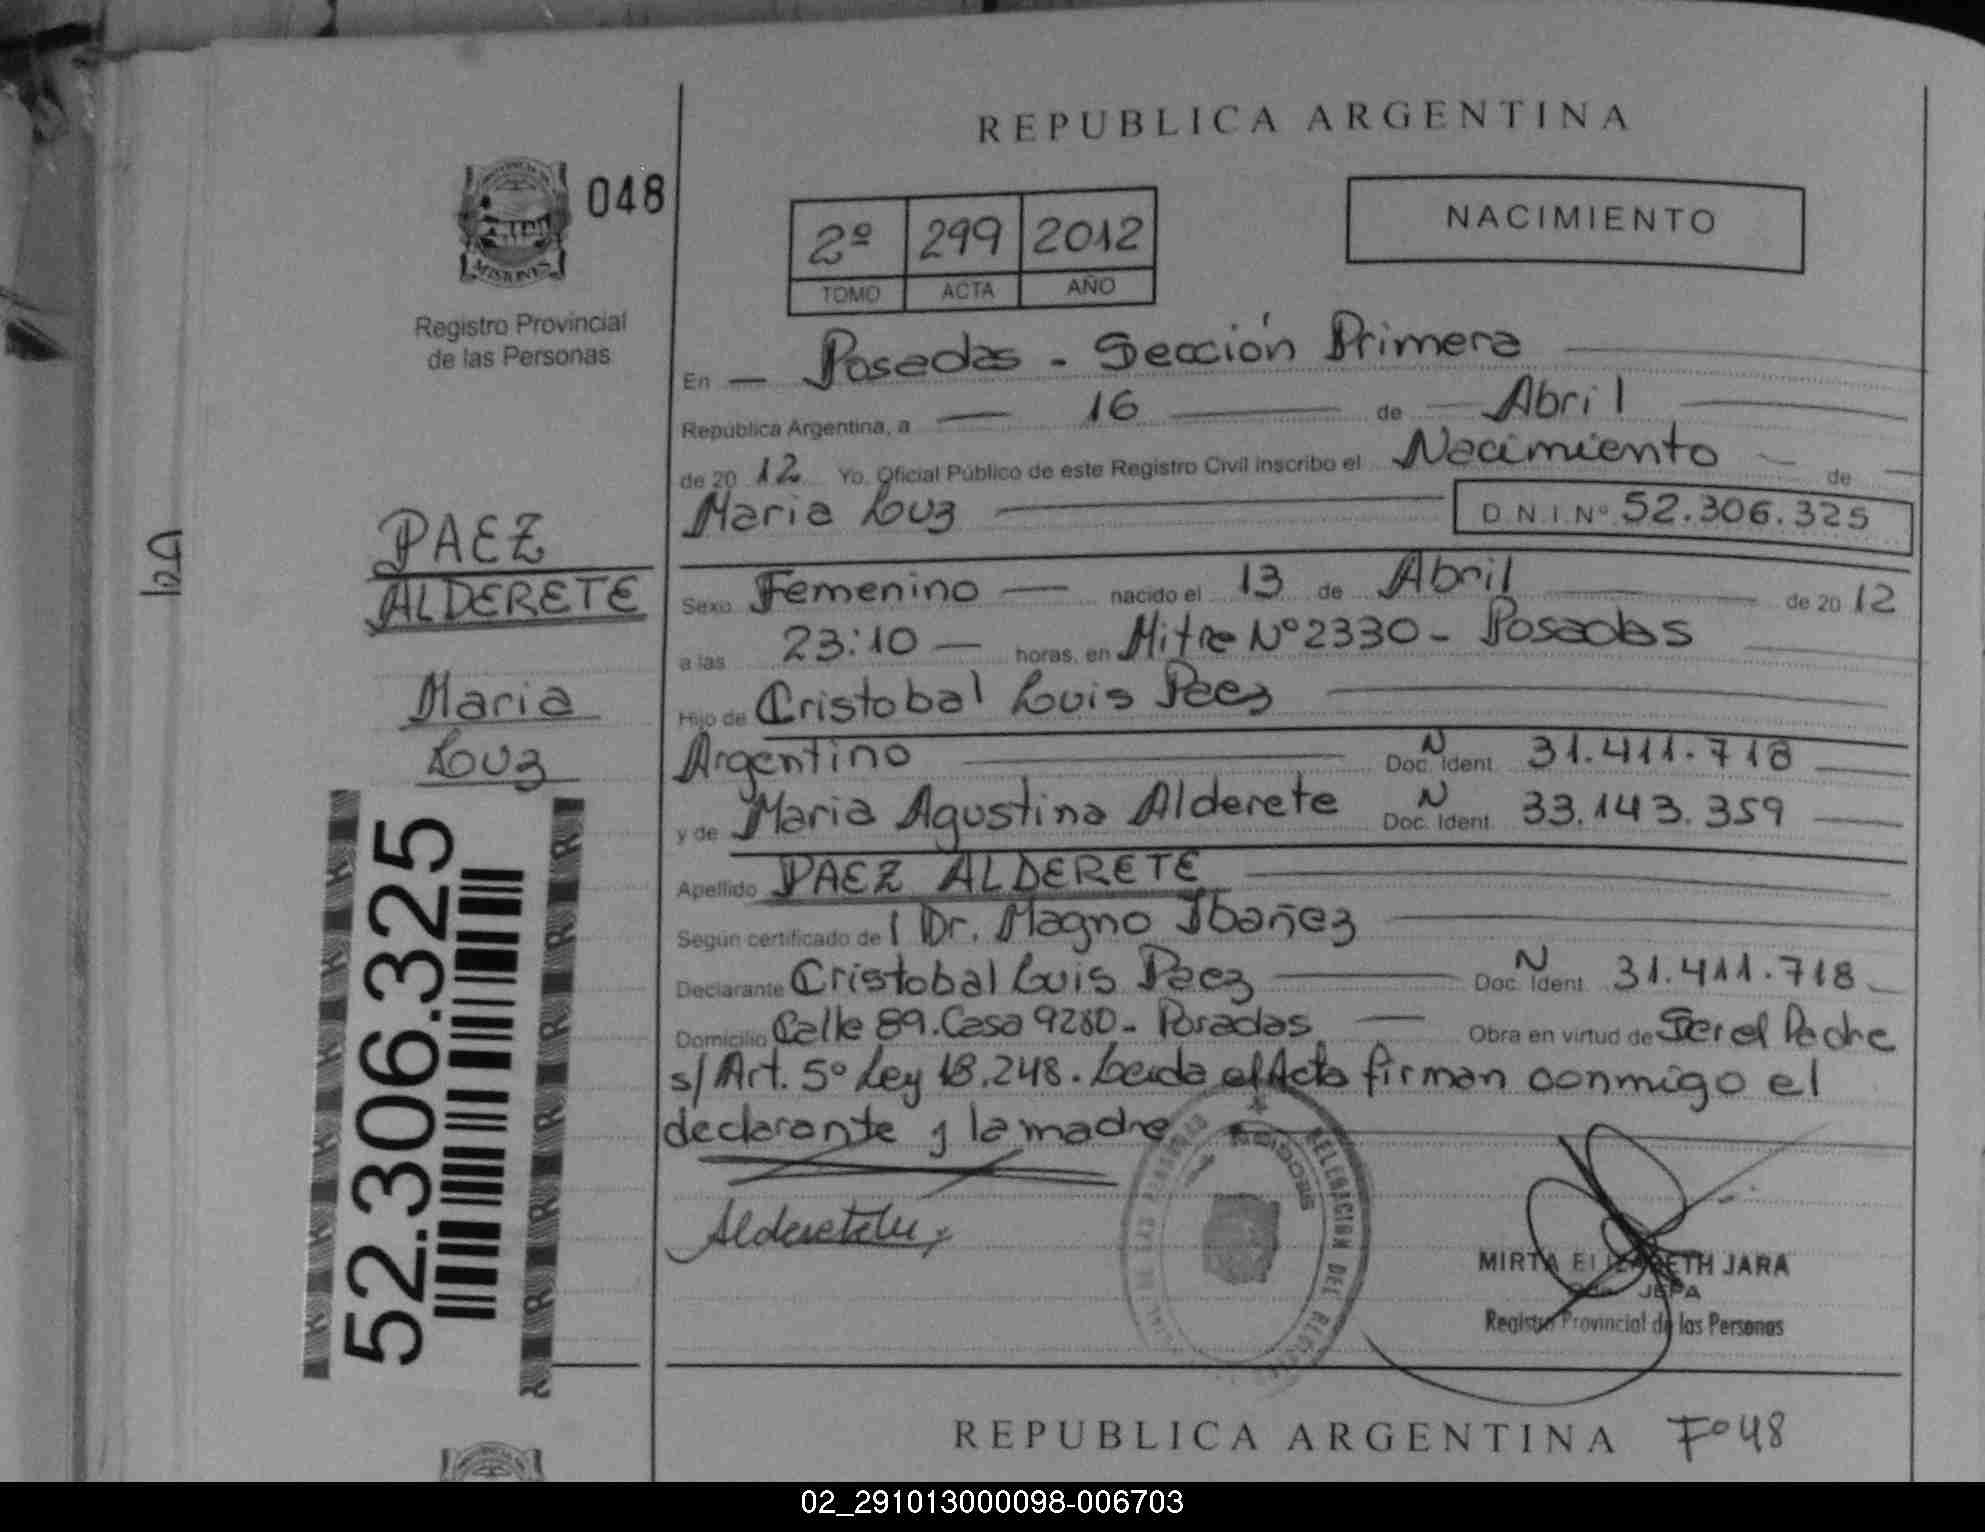 REPUBLICA ARGENTINA
048
MISIONES
Registro Provincial
de las Personas
2º 299 2012
TOMO ACTA AÑO
NACIMIENTO
En Posadas - Sección Primera
República Argentina, a 16 de Abril
de 2012 Yo, Oficial Público de este Registro Civil inscribo el Nacimiento de
Maria Luz D.N.I. Nº 52.306.325
PAEZ
ALDERETE
Maria
Luz
Sexo Femenino nacido el 13 de Abril de 2012
a las 23:10 horas, en Mitre Nº 2330 - Posadas
Hijo de Cristobal Luis Paez
Argentino N Doc. Ident. 31.411.718
y de Maria Agustina Alderete N Doc. Ident. 33.143.359
Apellido PAEZ ALDERETE
Según certificado de Dr. Magno Ibañez
Declarante Cristobal Luis Paez N Doc. Ident. 31.411.718
Domicilio Calle 89. Casa 9280 - Posadas Obra en virtud de Ser el Padre
s/ Art. 5º Ley 18.248. Leida el Acta firman conmigo el
declarante y la madre
52.306.325
DELEGACION DEL
MIRTA ELIZABETH JARA
JEFA
Registro Provincial de las Personas
REPUBLICA ARGENTINA Fº 48
02_291013000098-006703